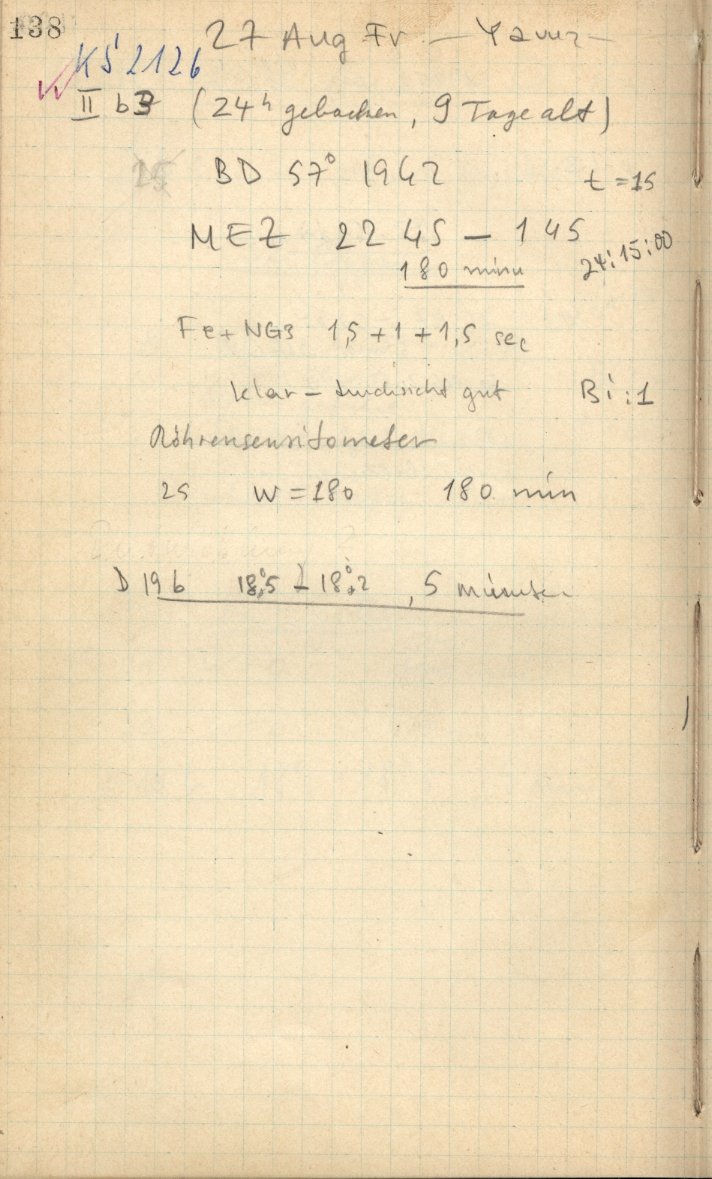 138
27 Aug Fr – Yavuz –
KŚ 2126
II b3 (24ʰ gebacken, 9 Tage alt)
BD 57° 1942 t = 15
MEZ 22 45 – 1 45
180 minu 24:15:00
Fe + NG3 1,5 + 1 + 1,5 sec
klar – durchsicht gut Bi : 1
Röhrensensitometer
25 W = 180 180 min
D 19 b 18°,5 – 18°,2 , 5 minuten